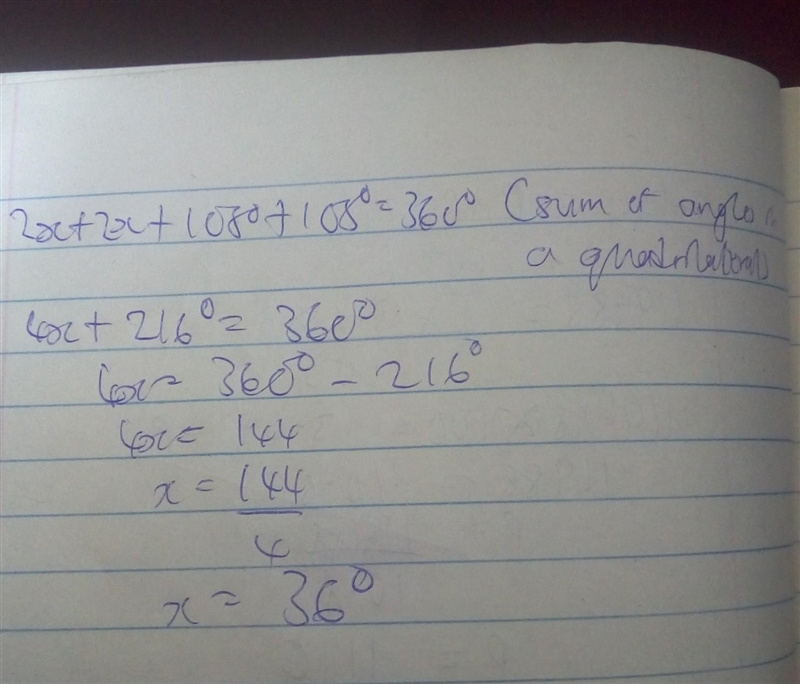 2x+2x+108°+108°=360° (sum of angles in
a quadrilateral)
4x+216°= 360°
4x= 360° - 216°
4x= 144
x = 144
4
x = 36°